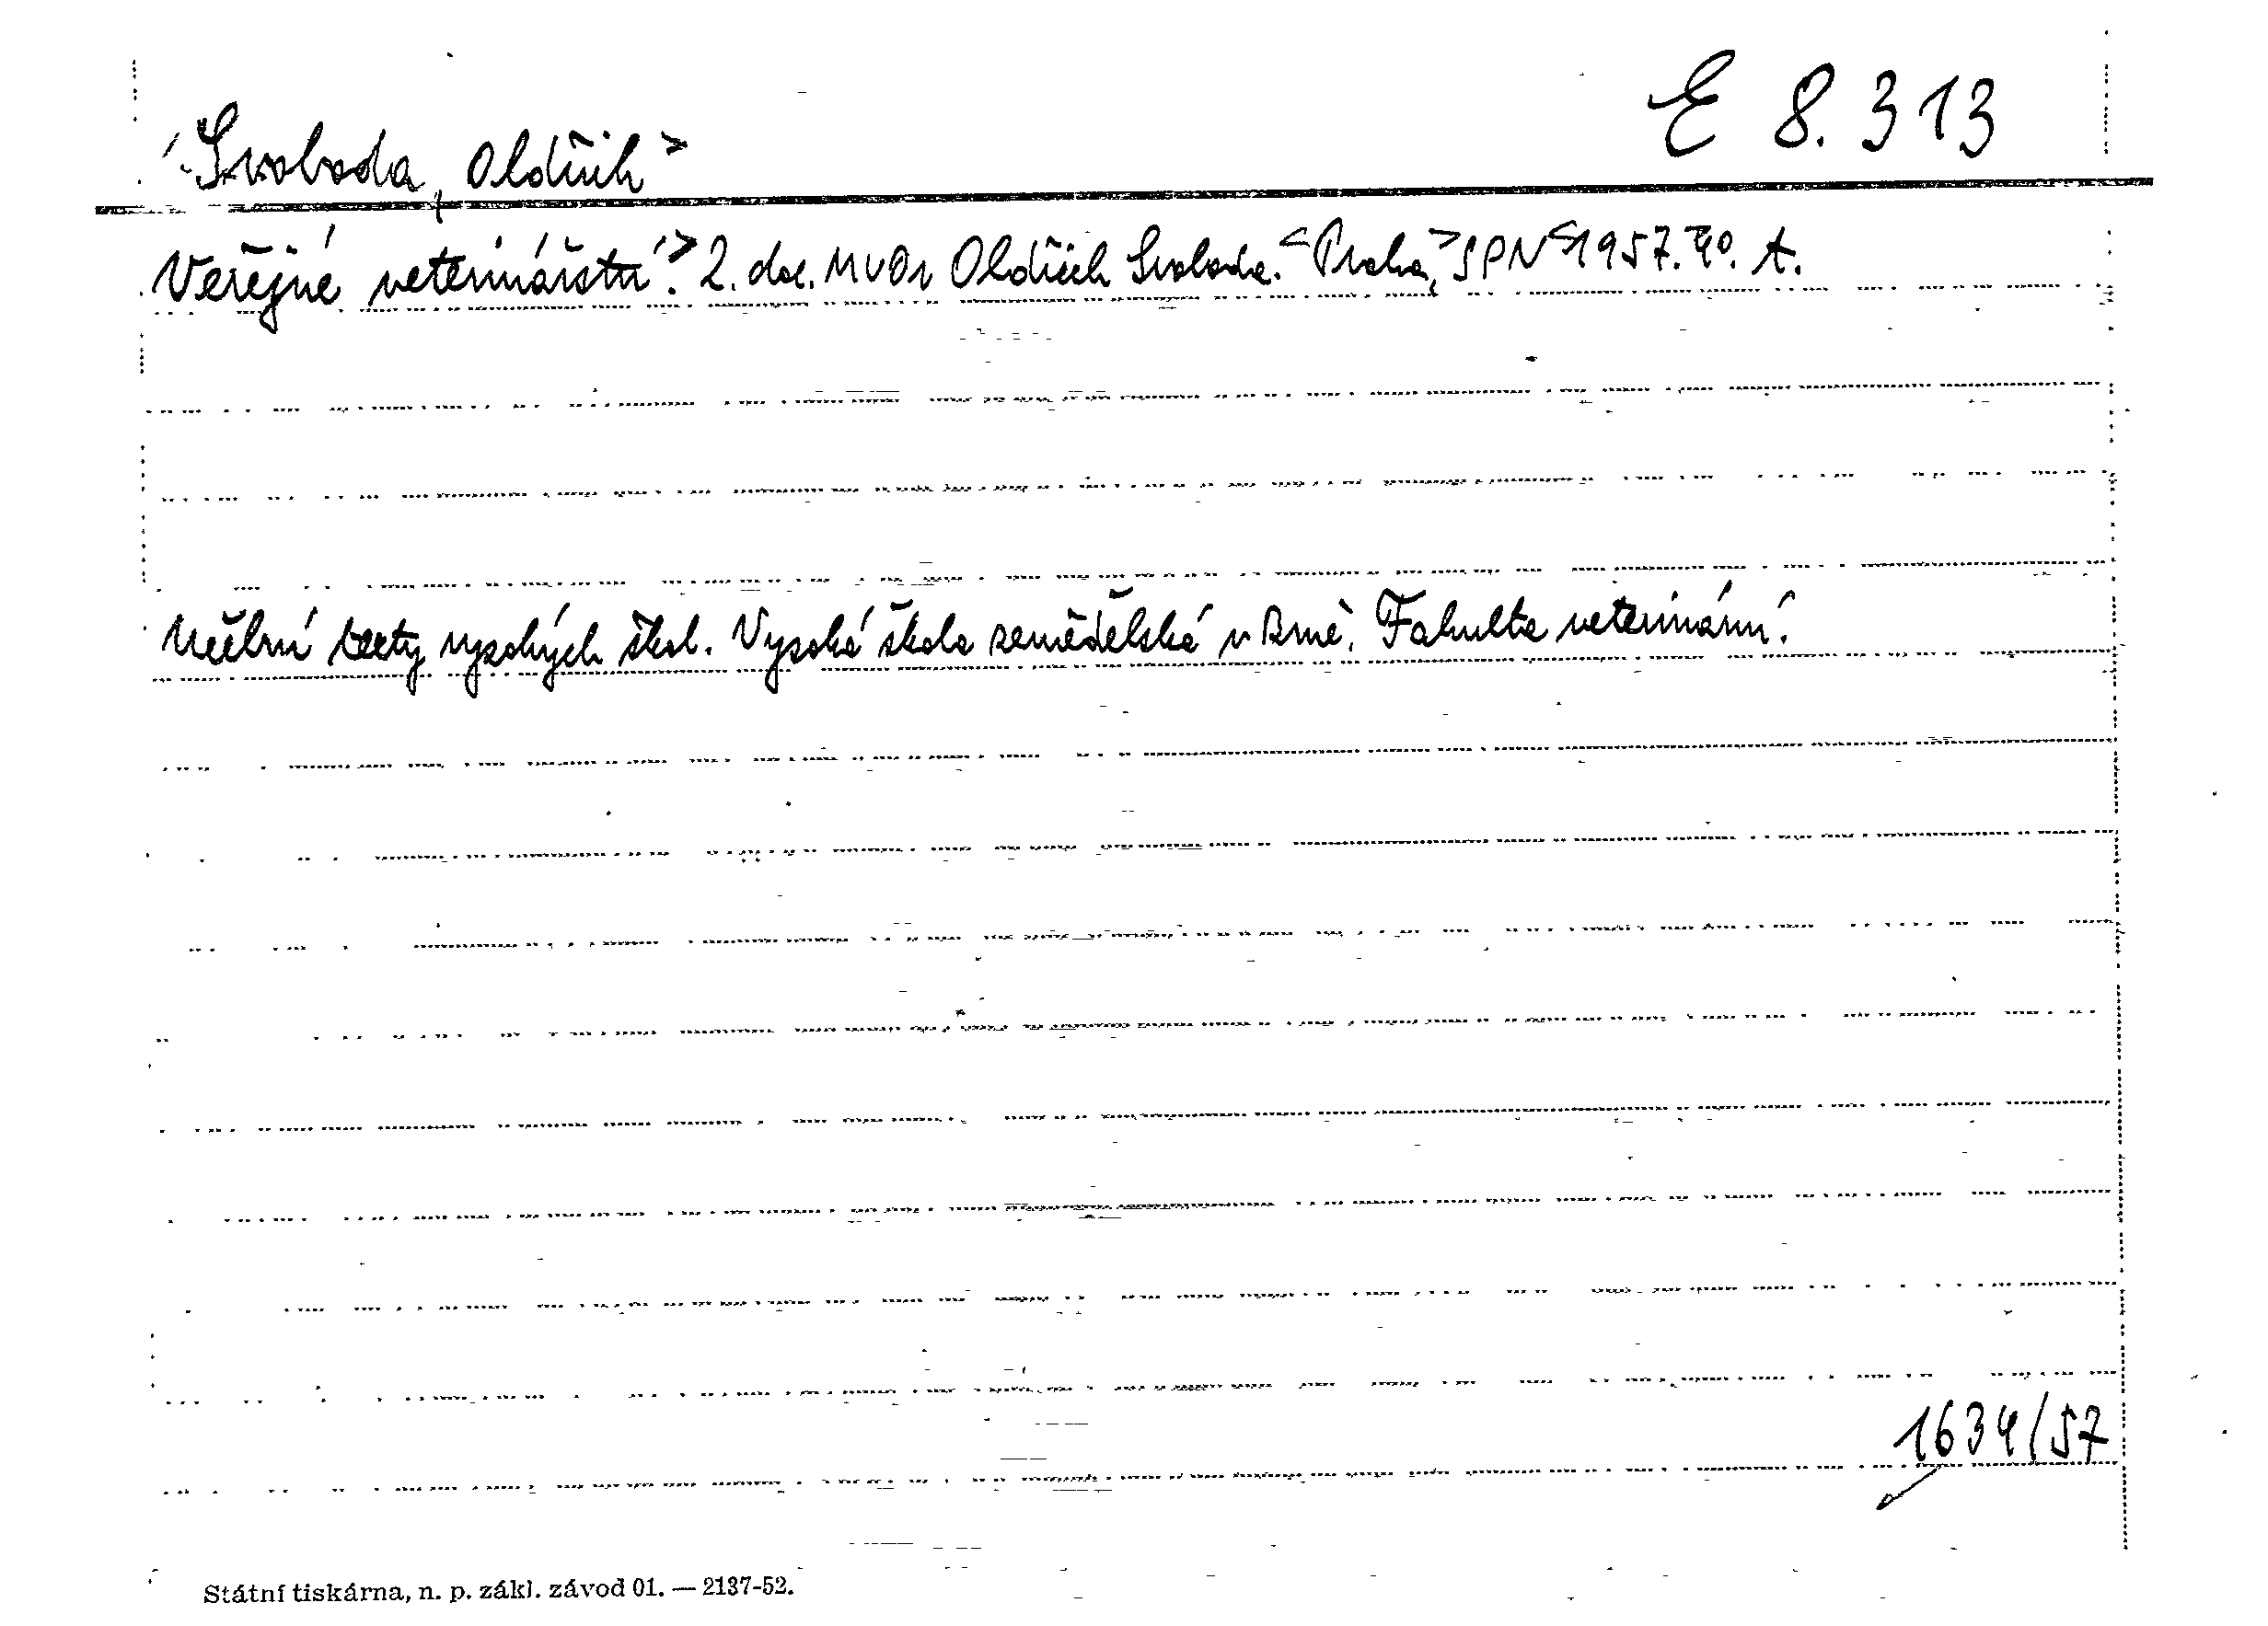 E 8.313
Svoboda, Oldřich>
Veřejné veterinářství.> 2. doc. MVDr Oldřich Svoboda. <Praha,> SPN <1957. 4°. A.
Učební texty vysokých škol. Vysoká škola zemědělská v Brně. Fakulta veterinární.
1634/57
Státní tiskárna, n. p. zákl. závod 01. — 2137-52.